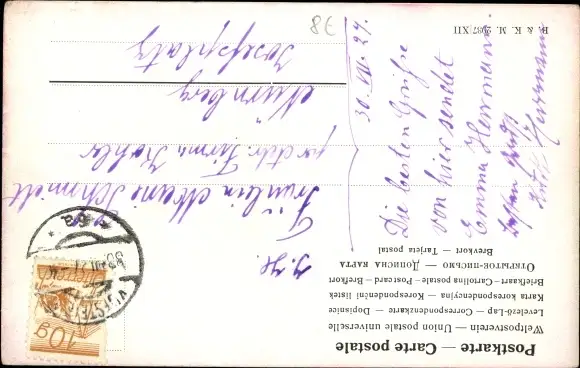 Postkarte — Carte postale
Weltpostverein — Union postale universelle
Levelező-Lap — Correspondenzkarte — Dopisnice
Karta korespondencyjna — Korespondenční lístek
Briefkaart — Cartolina postale — Postcard — Brefkort
Открытое письмо — Дописна карта
Brevkort — Tarjeta postal
B. & K. M. 2637 XII
30. VII. 27.
Die besten Grüße
von hier sendet
Emma Herrmann
Herrmann
Fräulein
Schmidt
per Adr. Firma Kohler
Nürnberg
Josefsplatz
10g
8€